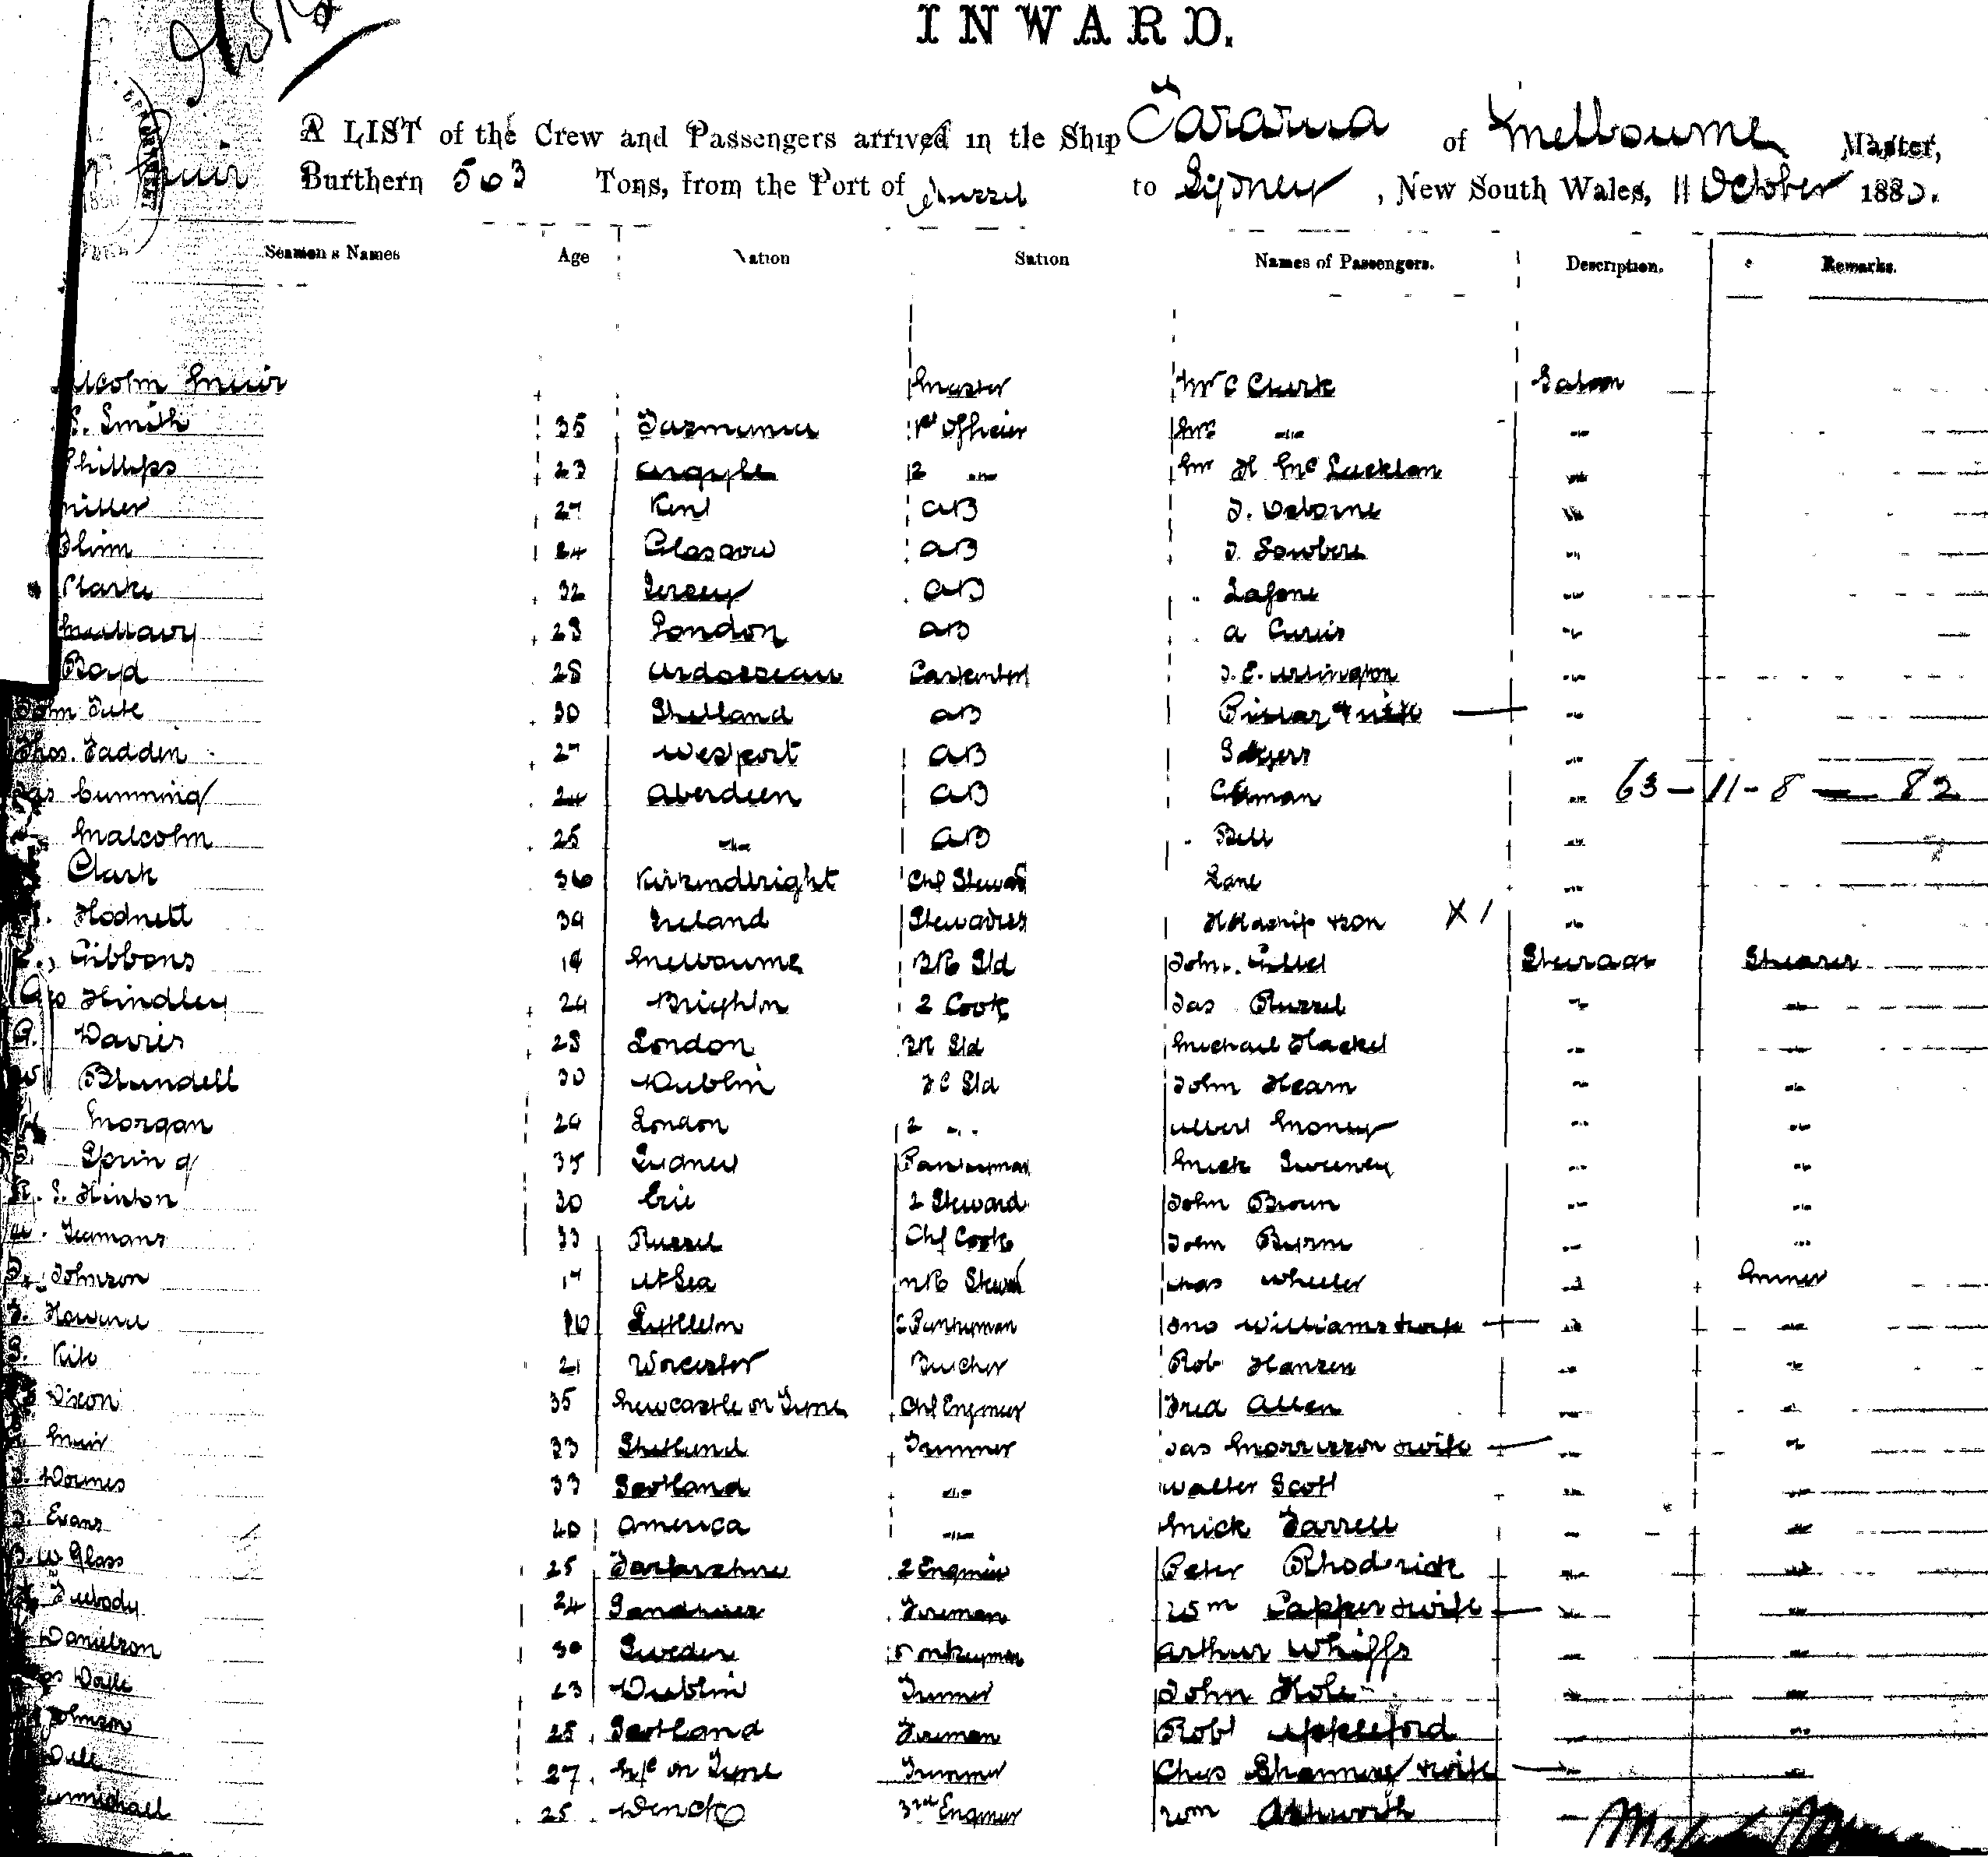 INWARD.
A LIST of the Crew and Passengers arrived in the Ship Tararua of Melbourne Master,
Muir Burthern 563 Tons, from the Port of to Sydney, New South Wales, 11 October 188
Seamens Names Age Nation Sation Names of Passengers. Description. Remarks.
lcolm Muir Master Mr C Clark Saloon
Smith 35 Tasmania 1st Officer Mrs -"- -"-
Phillips 23 Argyle 2 -"- Mr H McLucklan -"-
Miller 27 Kent AB T. Osborne -"-
Flinn 24 Glasgow AB -"-
Clarke 32 Jersey AB Lafone -"-
28 London AB A Curtis -"-
Boyd 28 Ardossean Carpenter J. E. Urlington -"-
John Tate 30 Shetland AB & wife -"-
Thos. Faddin 27 Wesport AB -"-
Jas Cumming 24 Aberdeen AB -"- 63-11-8 — 82
Malcolm 25 -"- AB Bell -"-
Clark 36 Kirkendbright Chf Steward Lane -"-
Hodnett 39 Ireland Stewardess & son X1 -"-
Gibbons 19 Melbourne BR Std John Steerage Shearer
Geo Hindley 24 Brighton 2 Cook Jas Russel -"- -"-
G. Davis 28 London Std Michael Hackel -"- -"-
W Blundell 30 Dublin FC Std John Hearn -"- -"-
Morgan 29 London 2 -"- Albert Money -"- -"-
Spring 35 Sydney Pantryman Mick Sweeney -"- -"-
R. S. Hinton 30 Erie 2 Steward John Brown -"- -"-
Yeomans 33 Russel Chf Cook John Byrne -"- -"-
Johnson 17 At Sea Steward Chas Wheeler -"- Miner
Howard 16 Lyttleton 2 Pantryman Jno Williams & wife -"- -"-
Kite 21 Worcester Butcher Rob Hansen -"- -"-
Dixon 35 Newcastle on Tyne Chf Engineer Fred Allen -"- -"-
Muir 33 Shetland Trimmer Jas Morrisson & wife -"- -"-
33 Scotland -"- Walter Scott -"- -"-
Evans 20 America -"- Mick Farrell -"- -"-
W Glass 25 Forfarshire 2 Engineer Peter Rhoderick -"- -"-
Freebody 24 Fireman Wm Capper & wife -"- -"-
Danielson 30 Sweden Donkeyman Arthur Whiffs -"- -"-
Doyle 23 Dublin Trimmer John Hole -"- -"-
Johnson 28 Scotland Fireman Robt Appleford -"- -"-
Dell 27 N/C on Tyne Trimmer Chas Shannon & wife -"- -"-
armichael 25 3rd Engineer Wm Ashworth -"-